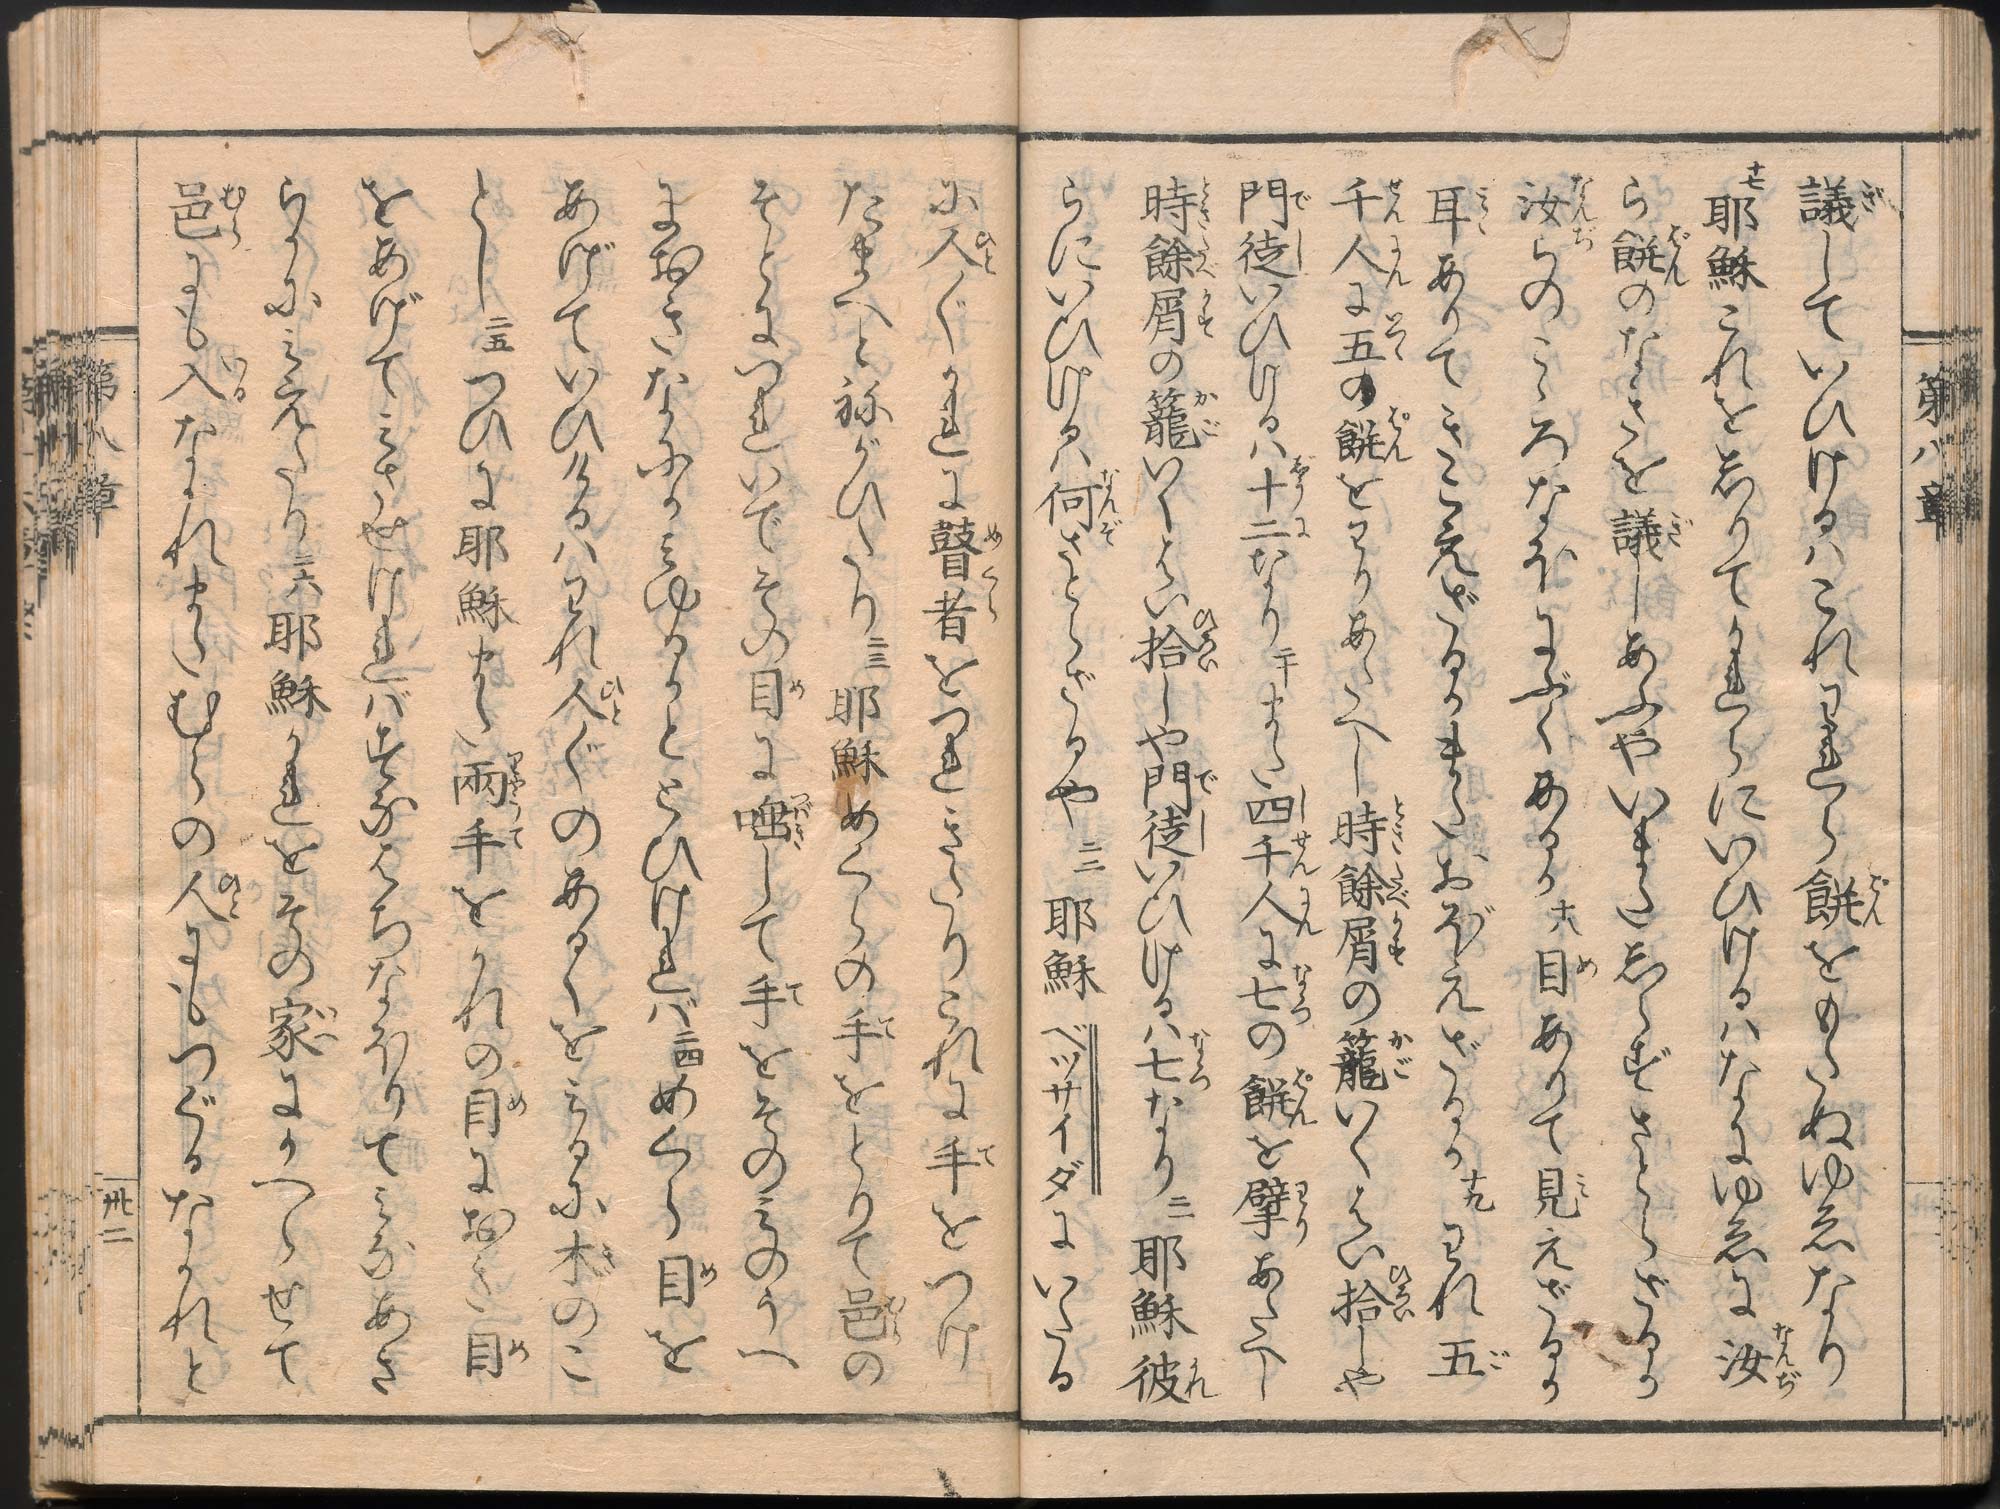 第八章
議していひけるハこれわれら餅をもたぬゆゑなり
十七耶穌これをしりてかれらにいひけるハなにゆゑに汝
ら餅のなきを議しあふやいまだしらずさとらざるか
汝らのこゝろなほにぶくあるか十八目ありて見えざるか
耳ありてきこえざるかまたおぼえざるか十九われ五
千人に五の餅をわりあたへし時餘屑の籠いくはい拾しや
門徒いひけるハ十二なり二十また四千人に七の餅を擘あたへし
時餘屑の籠いくはい拾しや門徒いひけるハ七なり二一耶穌彼
らにいひけるハ何ぞさとらざるや二二耶穌ベッサイダにいたる
に人〲かれに瞽者をつれきたりこれに手をつけ
たまへと祢がひたり二三耶穌めくらの手をとりて邑の
そとにつれいでその目に唾して手をその身のうへ
におきなにかみゆるかととひけれバ二四めくら目を
あげていひけるハわれ人〲のあるくをみるに木のご
とし二五つひに耶穌また兩手をかれの目におき目
をあげてみさせけれバすなはちなほりてみなあき
らかにみえたり二六耶穌かれをその家にかへらせて
邑にも入なかれまたむらの人にもつぐるなかれと
第八章
卅二